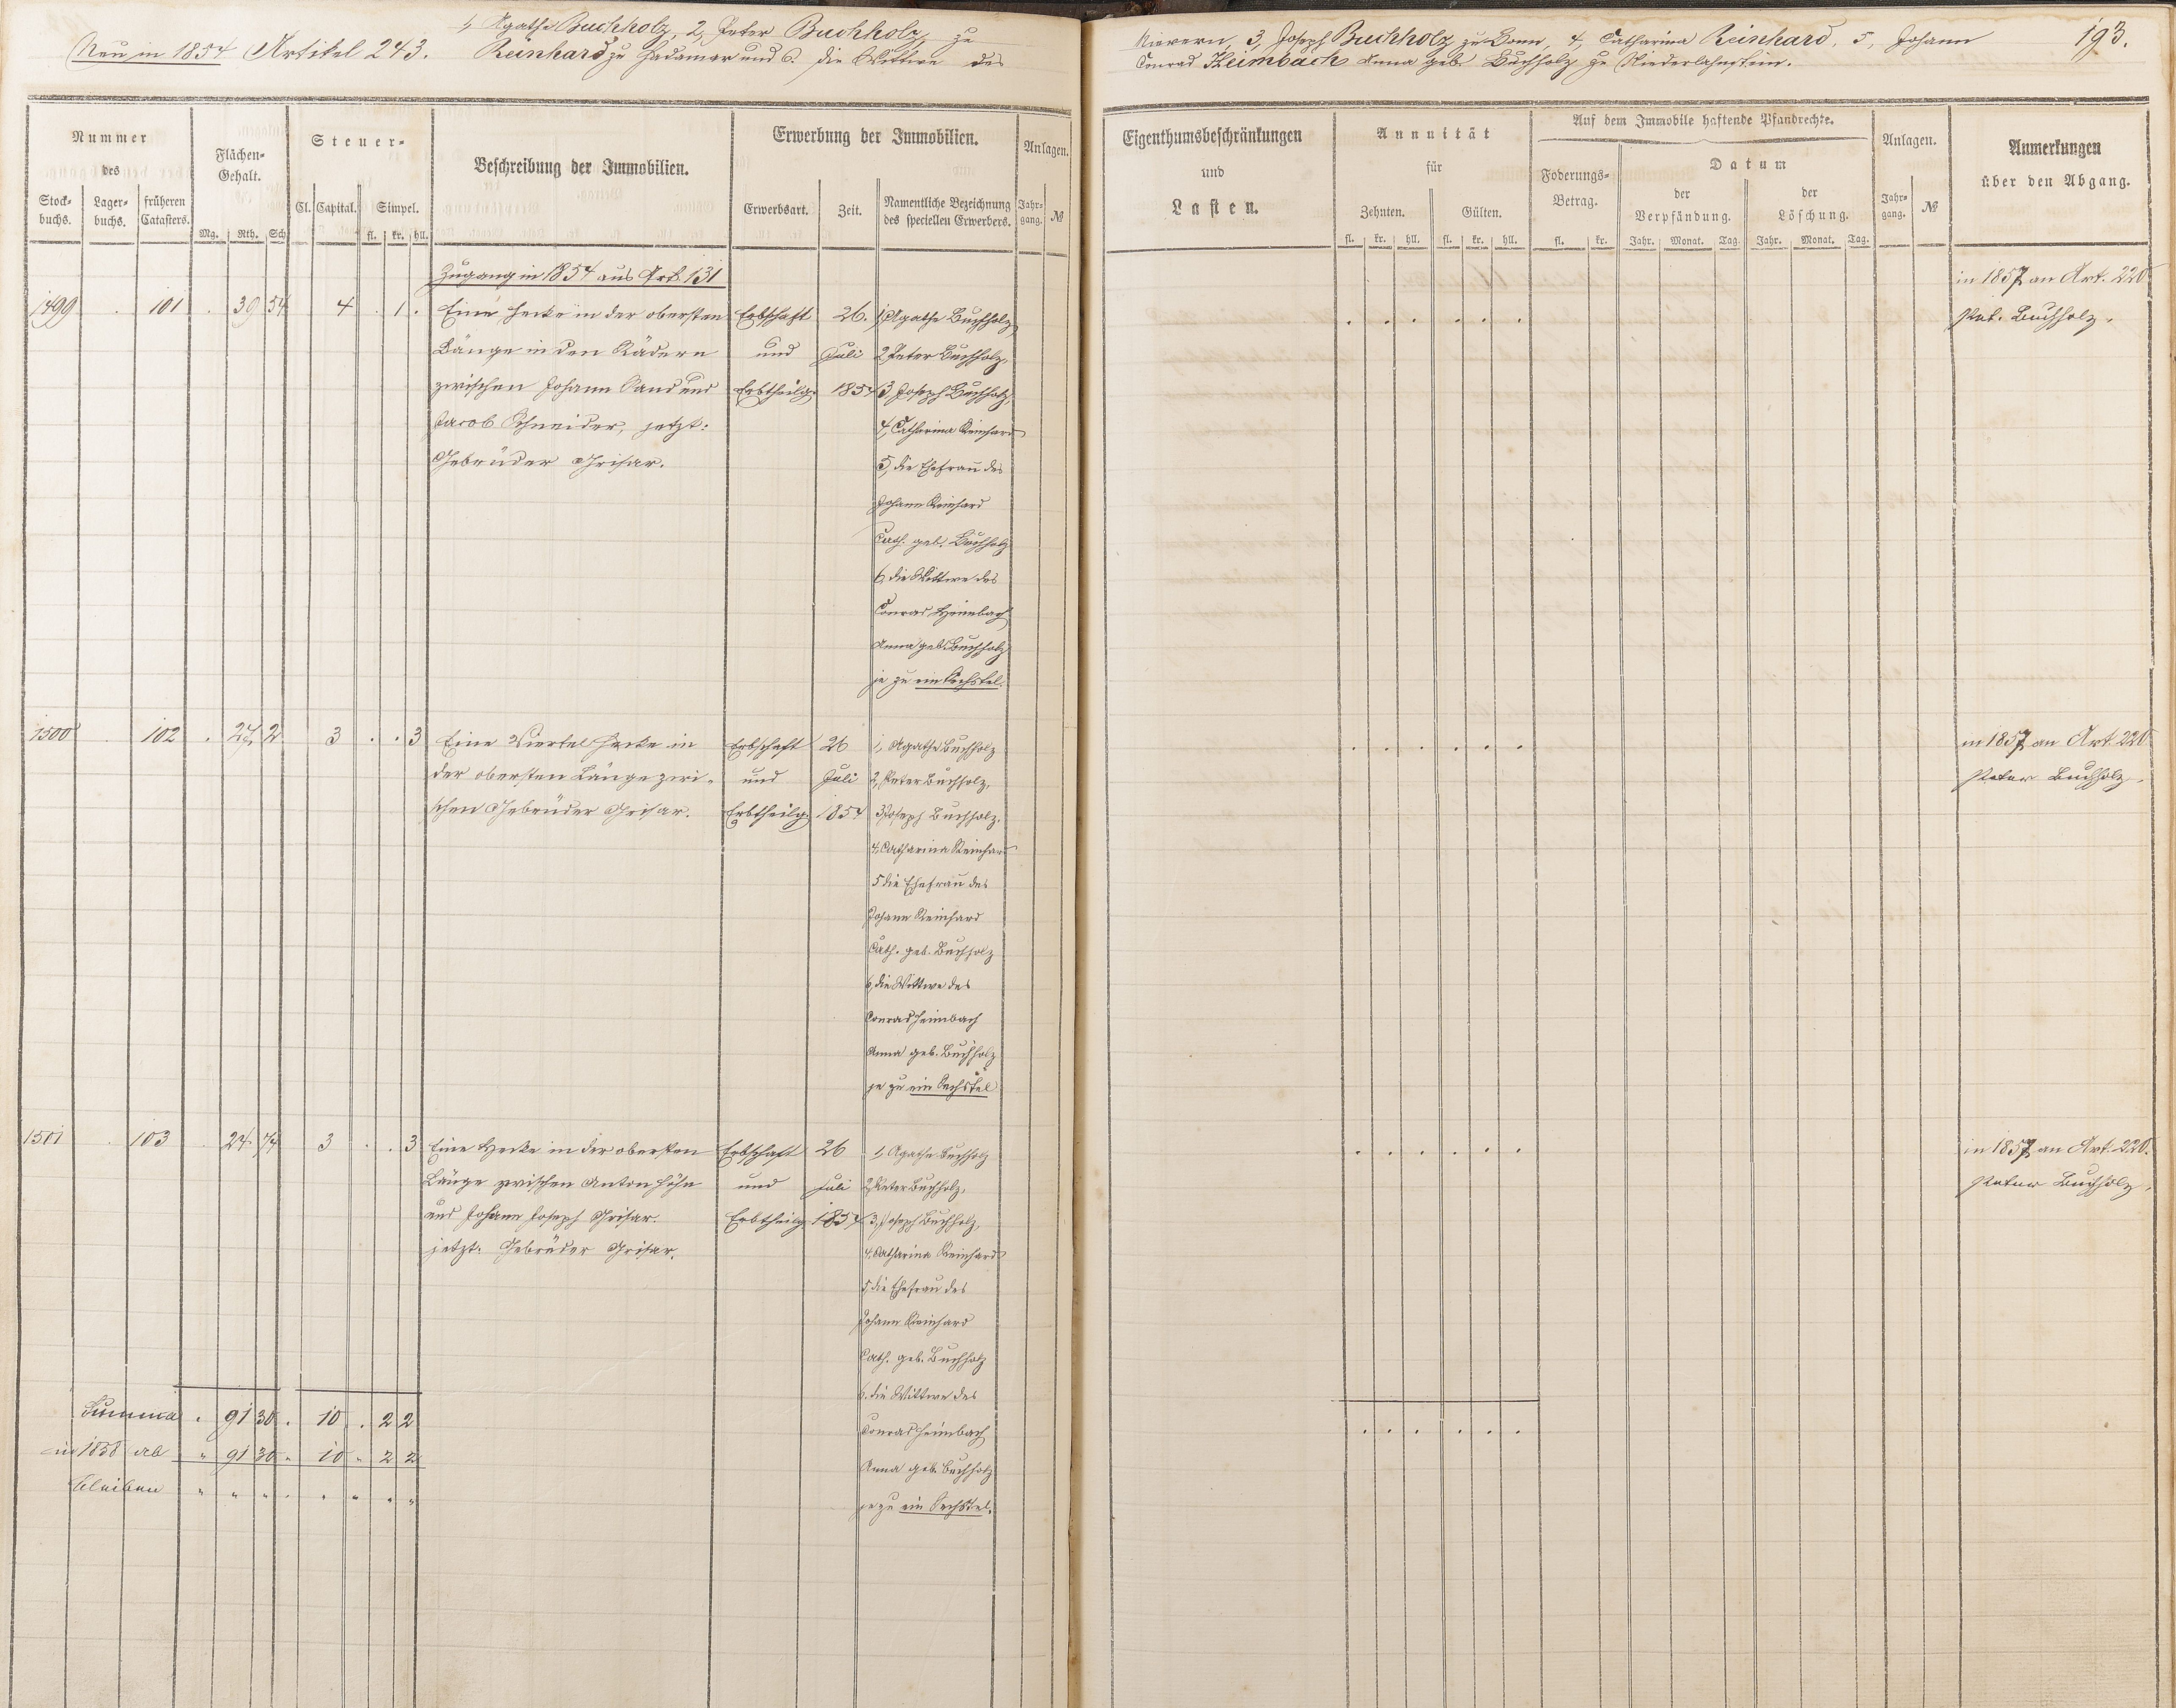 Neu in 1854 Artikel 243.
1, Agatha Buchholz, 2, Peter Buchholz, zu
Reinhard zu Hadamar und 6. die Wittwe des
Nievern, 3, Joseph Buchholz zu Bonn, 4, Catharina Reinhard, 5, Johann
Conrad Heimbach Anna geb. Buchholz zu Niederlahnstein.
193.
Nummer
des
Stock-buchs.
Lager-buchs.
früheren Catasters.
Flächen-Gehalt.
Mg. Rth. Sch
Steuer-
Cl. Capital. Simpel.
fl. kr. hll.
Beschreibung der Immobilien.
Erwerbung der Immobilien.
Erwerbsart. Zeit.
Namentliche Bezeichnung
des speciellen Erwerbers.
Anlagen.
Jahr-gang. №
Eigenthumsbeschränkungen
und
Lasten.
Annuität
für
Zehnten. Gülten.
fl. kr. hll. fl. kr. hll.
Auf dem Immobile haftende Pfandrechte.
Foderungs-Betrag.
fl. kr.
Datum
der Verpfändung.
der Löschung.
Jahr. Monat. Tag. Jahr. Monat. Tag.
Anlagen.
Jahr-gang. №
Anmerkungen
über den Abgang.
Zugang in 1854 aus Art. 131
1499 . 101 . 39 54 4 . 1 .
Eine Hecke in der obersten
Länge in den Rädern
zwischen Johann Sand und
Jacob Schneider, jetzt:
Gebrüder Grisar.
Erbschaft
und
Erbtheilg.
26.
Juli
1854
1, Agathe Buchholz
2, Peter Buchholz,
3, Joseph Buchholz,
4, Catharina Reinhard
5, die Ehefrau des
Johann Reinhard
Cath. geb. Buchholz
6, die Wittwe des
Conrad Heimbach
Anna geb. Buchholz
je zu ein Sechstel.
in 1857 an Art. 220
Pet. Buchholz.
1500 . 102 . 27 2 3 . . 3
Eine Viertel Hecke in
der obersten Länge zwi-
schen Gebrüder Grisar.
Erbschaft
und
Erbtheilg.
26
Juli
1854
1, Agathe Buchholz
2, Peter Buchholz,
3, Joseph Buchholz,
4, Catharina Reinhard
5 die Ehefrau des
Johann Reinhard
Cath. geb. Buchholz
6, die Wittwe des
Conrad Heimbach
Anna geb. Buchholz
je zu ein Sechstel
in 1857 an Art. 220
Peter Buchholz.
1501 . 103 . 24 74 3 . . 3
Eine Hecke in der obersten
Länge zwischen Anton Höhn
und Johann Joseph Grisar.
jetzt: Gebrüder Grisar.
Erbschaft
und
Erbtheilg.
26
Juli
1854
1, Agathe Buchholz
2, Peter Buchholz,
3, Joseph Buchholz,
4, Catharina Reinhard
5, die Ehefrau des
Johann Reinhard
Cath. geb. Buchholz
6. die Wittwe des
Conrad Heimbach
Anna geb. Buchholz
je zu ein Sechstel.
in 1857 an Art. 220.
Peter Buchholz.
Summa . 91 30 . 10 . 2 2
in 1858 ab " 91 30 " 10 " 2 2
bleiben " " " " " " " "